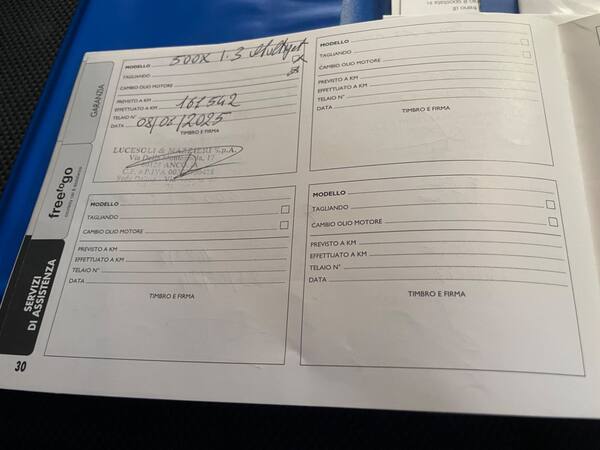 MODELLO 500X 1.3 Multijet
TAGLIANDO
CAMBIO OLIO MOTORE
PREVISTO A KM
EFFETTUATO A KM 161542
TELAIO N°
DATA 08/01/2025
TIMBRO E FIRMA
LUCESOLI & MAZZIERI S.p.A.
Via Della 17
ANCONA
C.F. e P.IVA
MODELLO
TAGLIANDO
CAMBIO OLIO MOTORE
PREVISTO A KM
EFFETTUATO A KM
TELAIO N°
DATA
TIMBRO E FIRMA
MODELLO
TAGLIANDO
CAMBIO OLIO MOTORE
PREVISTO A KM
EFFETTUATO A KM
TELAIO N°
DATA
TIMBRO E FIRMA
MODELLO
TAGLIANDO
CAMBIO OLIO MOTORE
PREVISTO A KM
EFFETTUATO A KM
TELAIO N°
DATA
TIMBRO E FIRMA
GARANZIA
freetogo
SERVIZI
DI ASSISTENZA
30